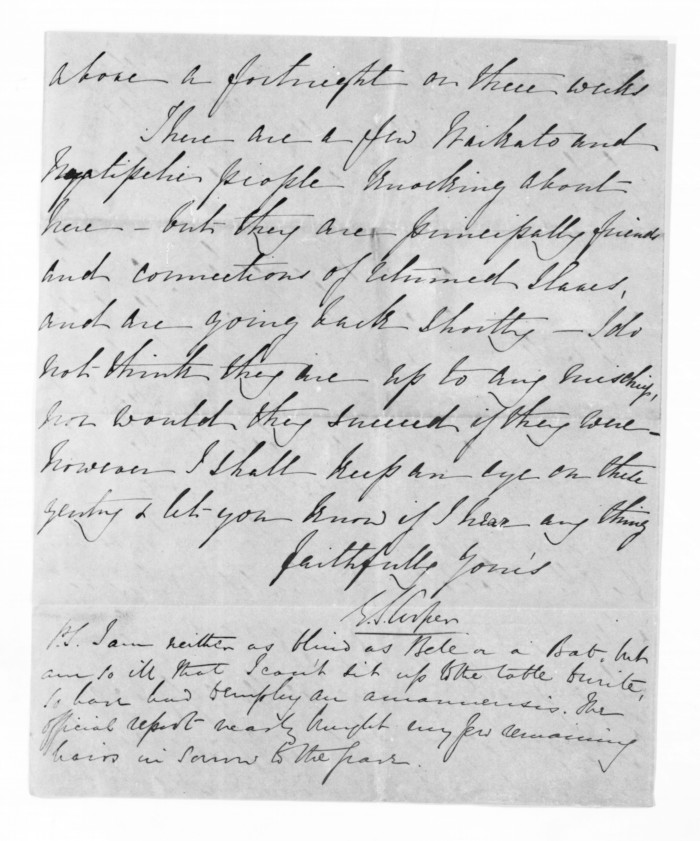 above a fortnight or three weeks
There are a few Waikato and
Ngatipehi people knocking about
here - but they are principally friends
and connections of returned slaves,
and are going back shortly - I do
not think they are up to any mischief,
nor would they succeed if they were -
however I shall keep an eye on these
gentry & let you know if I hear any thing
faithfully Yours
G.S. Cooper
P.S. I am neither as blind as Bete or a Bat, but
am so ill that I can't sit up to the table to write,
so have had to employ an amanuensis. The
official report nearly brought my few remaining
hairs in sorrow to the grave.